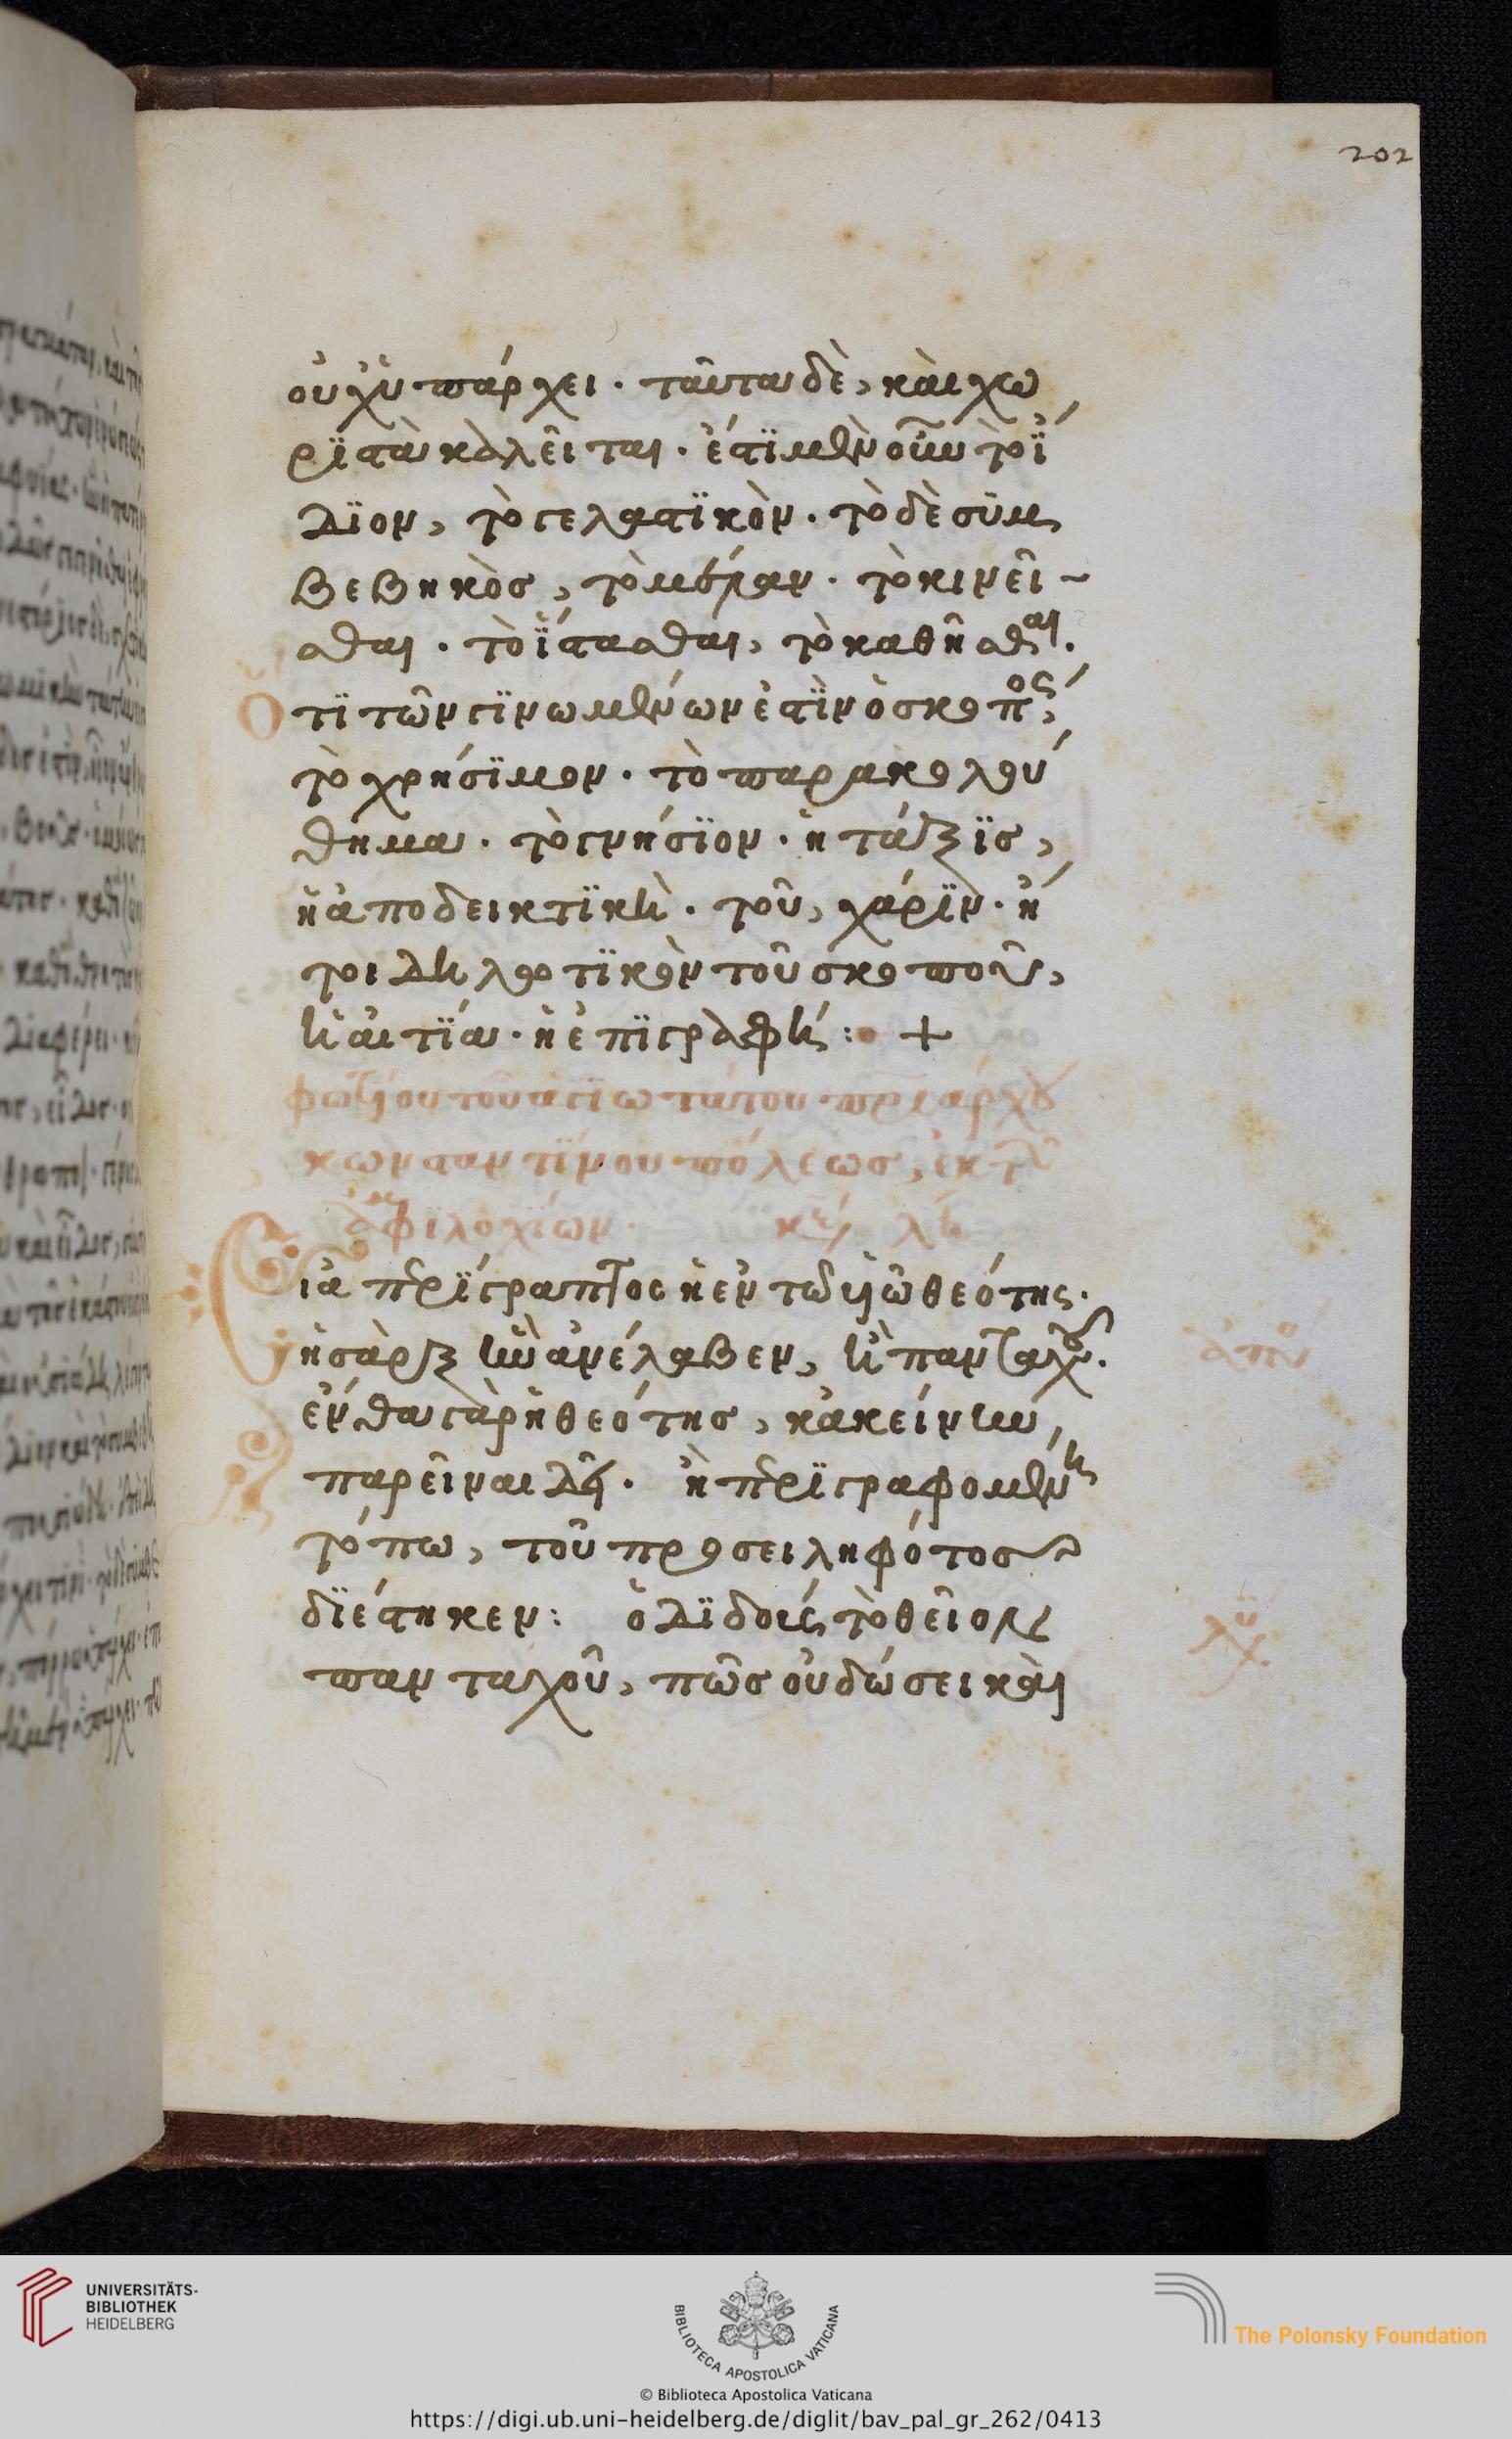 202
οὐχ ὑπάρχει · ταῦτα δὲ, καὶ χω
ρϊστὰ καλεῖται · ἔστϊ μὲν οὖν τὸ ἴ
δϊον, τὸ γελαστϊκὸν · τὸ δὲ συμ
βεβηκὸσ, τὸ μέλαν · τὸ κινεῖ
σθαι · τὸ ἵστασθαι, τὸ καθῆσθαι ·
Ὅτϊ τῶν γϊνωμένων ἐστὶν ὁ σκοπός,
τὸ χρήσϊμον · τὸ παρακολού
θημα · τὸ γνήσϊον · ἡ τάξϊσ,
ἡ ἀποδεικτϊκὴ · τοῦ, χάρϊν · ἤ
τοι δηλωτϊκὸν τοῦ σκοποῦ,
ἡ αἰτία · ἡ ἐπϊγραφή : +
φωτίου τοῦ ἁγϊωτάτου πρϊάρχου
κωνσταντίνου πόλεωσ, ἐκ τῶν
ἀμφϊλοχίων · κε λη
Εἰ ἀπερίγραπτος ἡ ἐν τῶ υἱῶ θεότης ·
ἡ σὰρξ ἣν ἀνέλαβεν, ἢ πανταχοῦ ·
ἔνθα γὰρ ἡ θεότησ, κἀκείνην
παρεῖναι δεῖ · ἢ περϊγραφομένη
τόπω, τοῦ προσειληφότοσ
δϊέστηκεν : ὁ δϊδοὺς τὸ θεῖον
πανταχοῦ, πῶσ οὐ δώσει καὶ
UNIVERSITÄTS-
BIBLIOTHEK
HEIDELBERG
BIBLIOTECA APOSTOLICA VATICANA
The Polonsky Foundation
© Biblioteca Apostolica Vaticana
https://digi.ub.uni-heidelberg.de/diglit/bav_pal_gr_262/0413